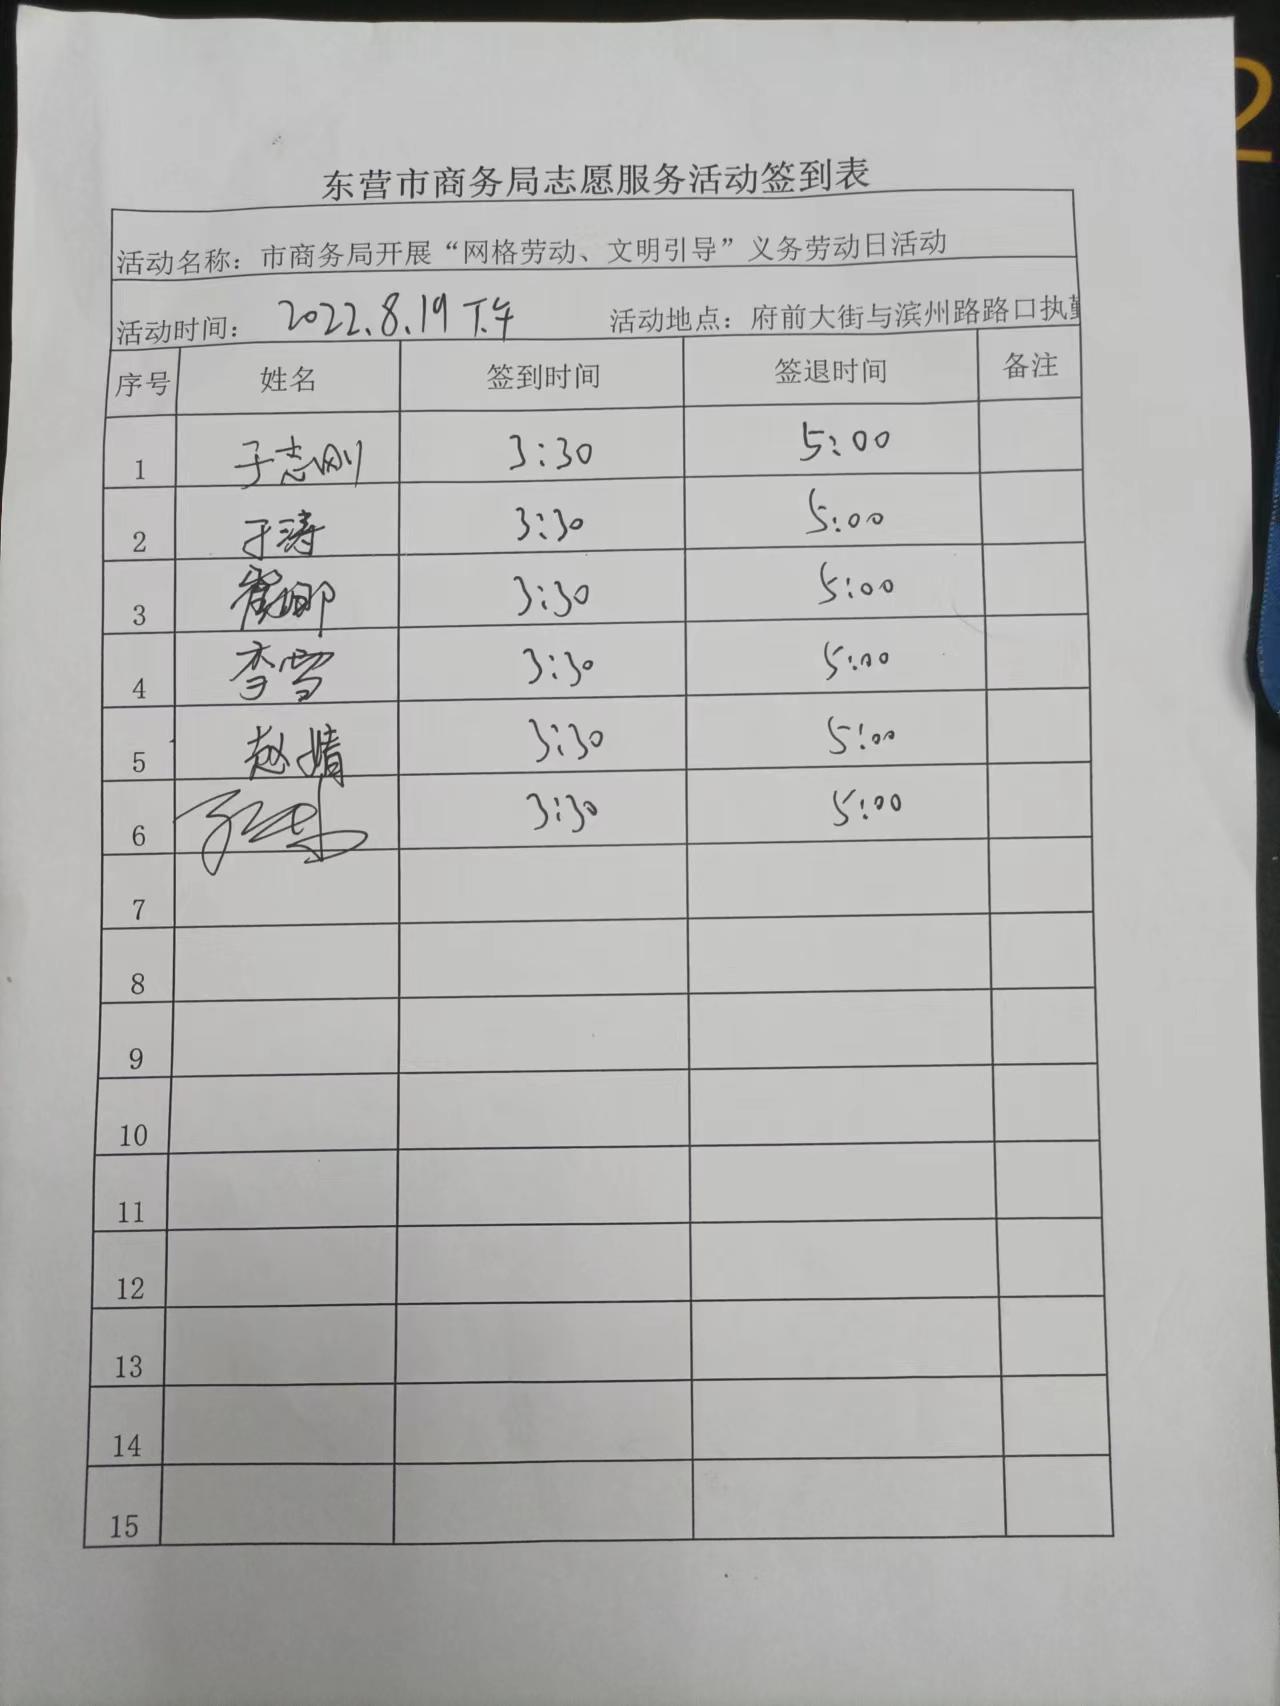 东营市商务局志愿服务活动签到表
活动名称：市商务局开展“网格劳动、文明引导”义务劳动日活动
活动时间： 2022.8.19 下午 活动地点：府前大街与滨州路路口执勤
序号 姓名 签到时间 签退时间 备注
1 于志刚 3:30 5:00
2 于涛 3:30 5:00
3 崔娜 3:30 5:00
4 李雪 3:30 5:00
5 赵婧 3:30 5:00
6 3:30 5:00
7
8
9
10
11
12
13
14
15
2